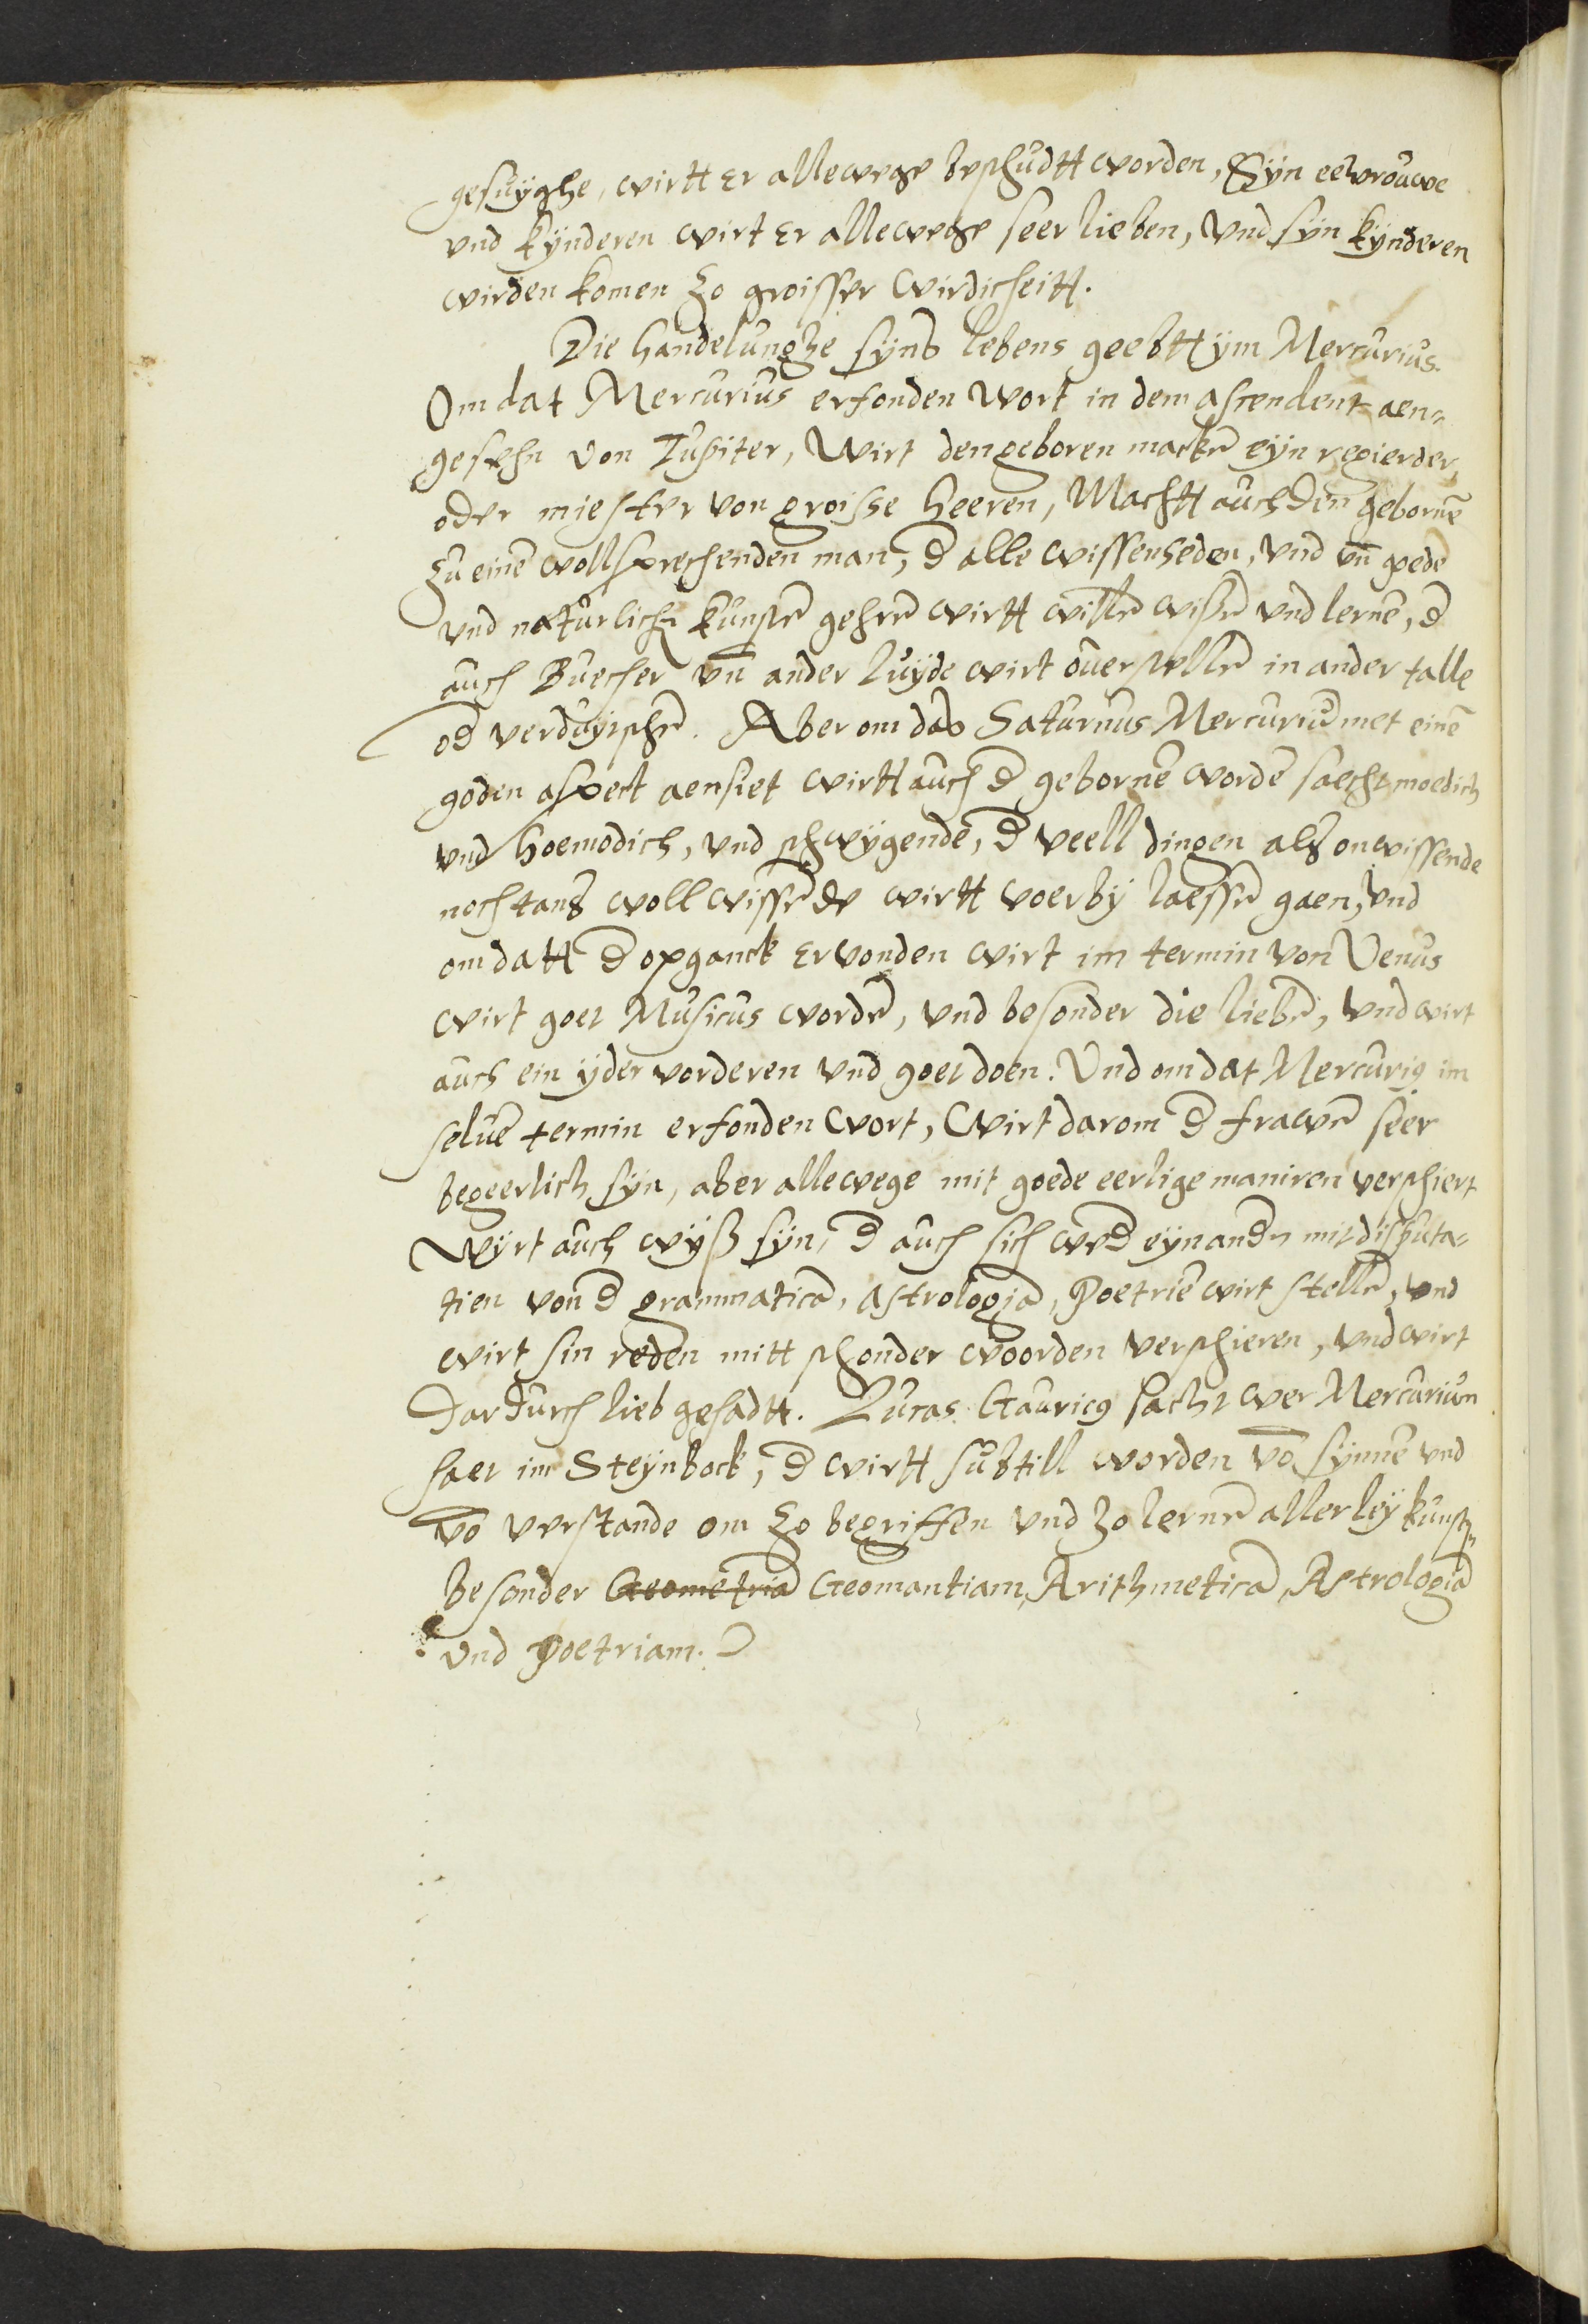 gesuÿghe, wirtt Er allewege beschudtt worden, Sÿn eewrouwe
vnd kÿnderen wirt Er allewege seer lieben, vnd sÿn kÿnderen
wirden komen zo groisser wirdicheitt.
Die handelunghe sÿns lebens geebtt ÿm Mercurius.
Om dat Mercurius erfonden wort in dem ascendent aen-
gesehn von Iupiter, Wirt den geboren mackē eÿn regierder,
oder miester von groisse heeren, Machtt auch den gebornē
zu einē wollsprechenden man, d alle wissenheden, vnd vn̄ goede
vnd naturlichē kunstē gehrē wirtt willē wissē vnd lernē, d
auch Buecher vn̄ ander luÿde wirt ouerstellē in ander talle
od verduÿtschē. Aber om das Saturnus Mercuriū met einē
goden aspect aensiet wirtt auch d gebornē wordē saechtmoedich
vnd hoemodich, vnd schwÿgende, d veell dingen als onwissende
nochtans woll wissēde wirtt voerbÿ laessē gaen, vnd
om datt d opganck Ervonden wirt im termin von Venus
wirt goet Musicus wordē, vnd besonder die liebē, vnd wirt
auch ein ÿder vorderen vnd goet doen. Vnd om dat Mercurius im
seluē termin erfonden wort, Wirt darom d frawē seer
begeerlich sÿn, aber allewege mit goede eerlige maniren verschiert
Wÿrt auch wÿß sÿn, d auch sich wed eÿn andn mit disputa-
tien von d grammaticā, astrologiā, Poetriē wirt stellē, vnd
wirt sin reden mitt schonder woorden verschieren, vnd wirt
dardurch lieb gehadtt. Lucas Gauricus sacht wer Mercurium
haet im Steÿnbock, d wirtt subtill worden vō sÿnnē vnd
vō verstande om zo begriffen vnd zo lernē allerleÿ kunstē
besonder Geometriā Geomantiam, Arithmeticā, Astrologiā
vnd Poetriam.